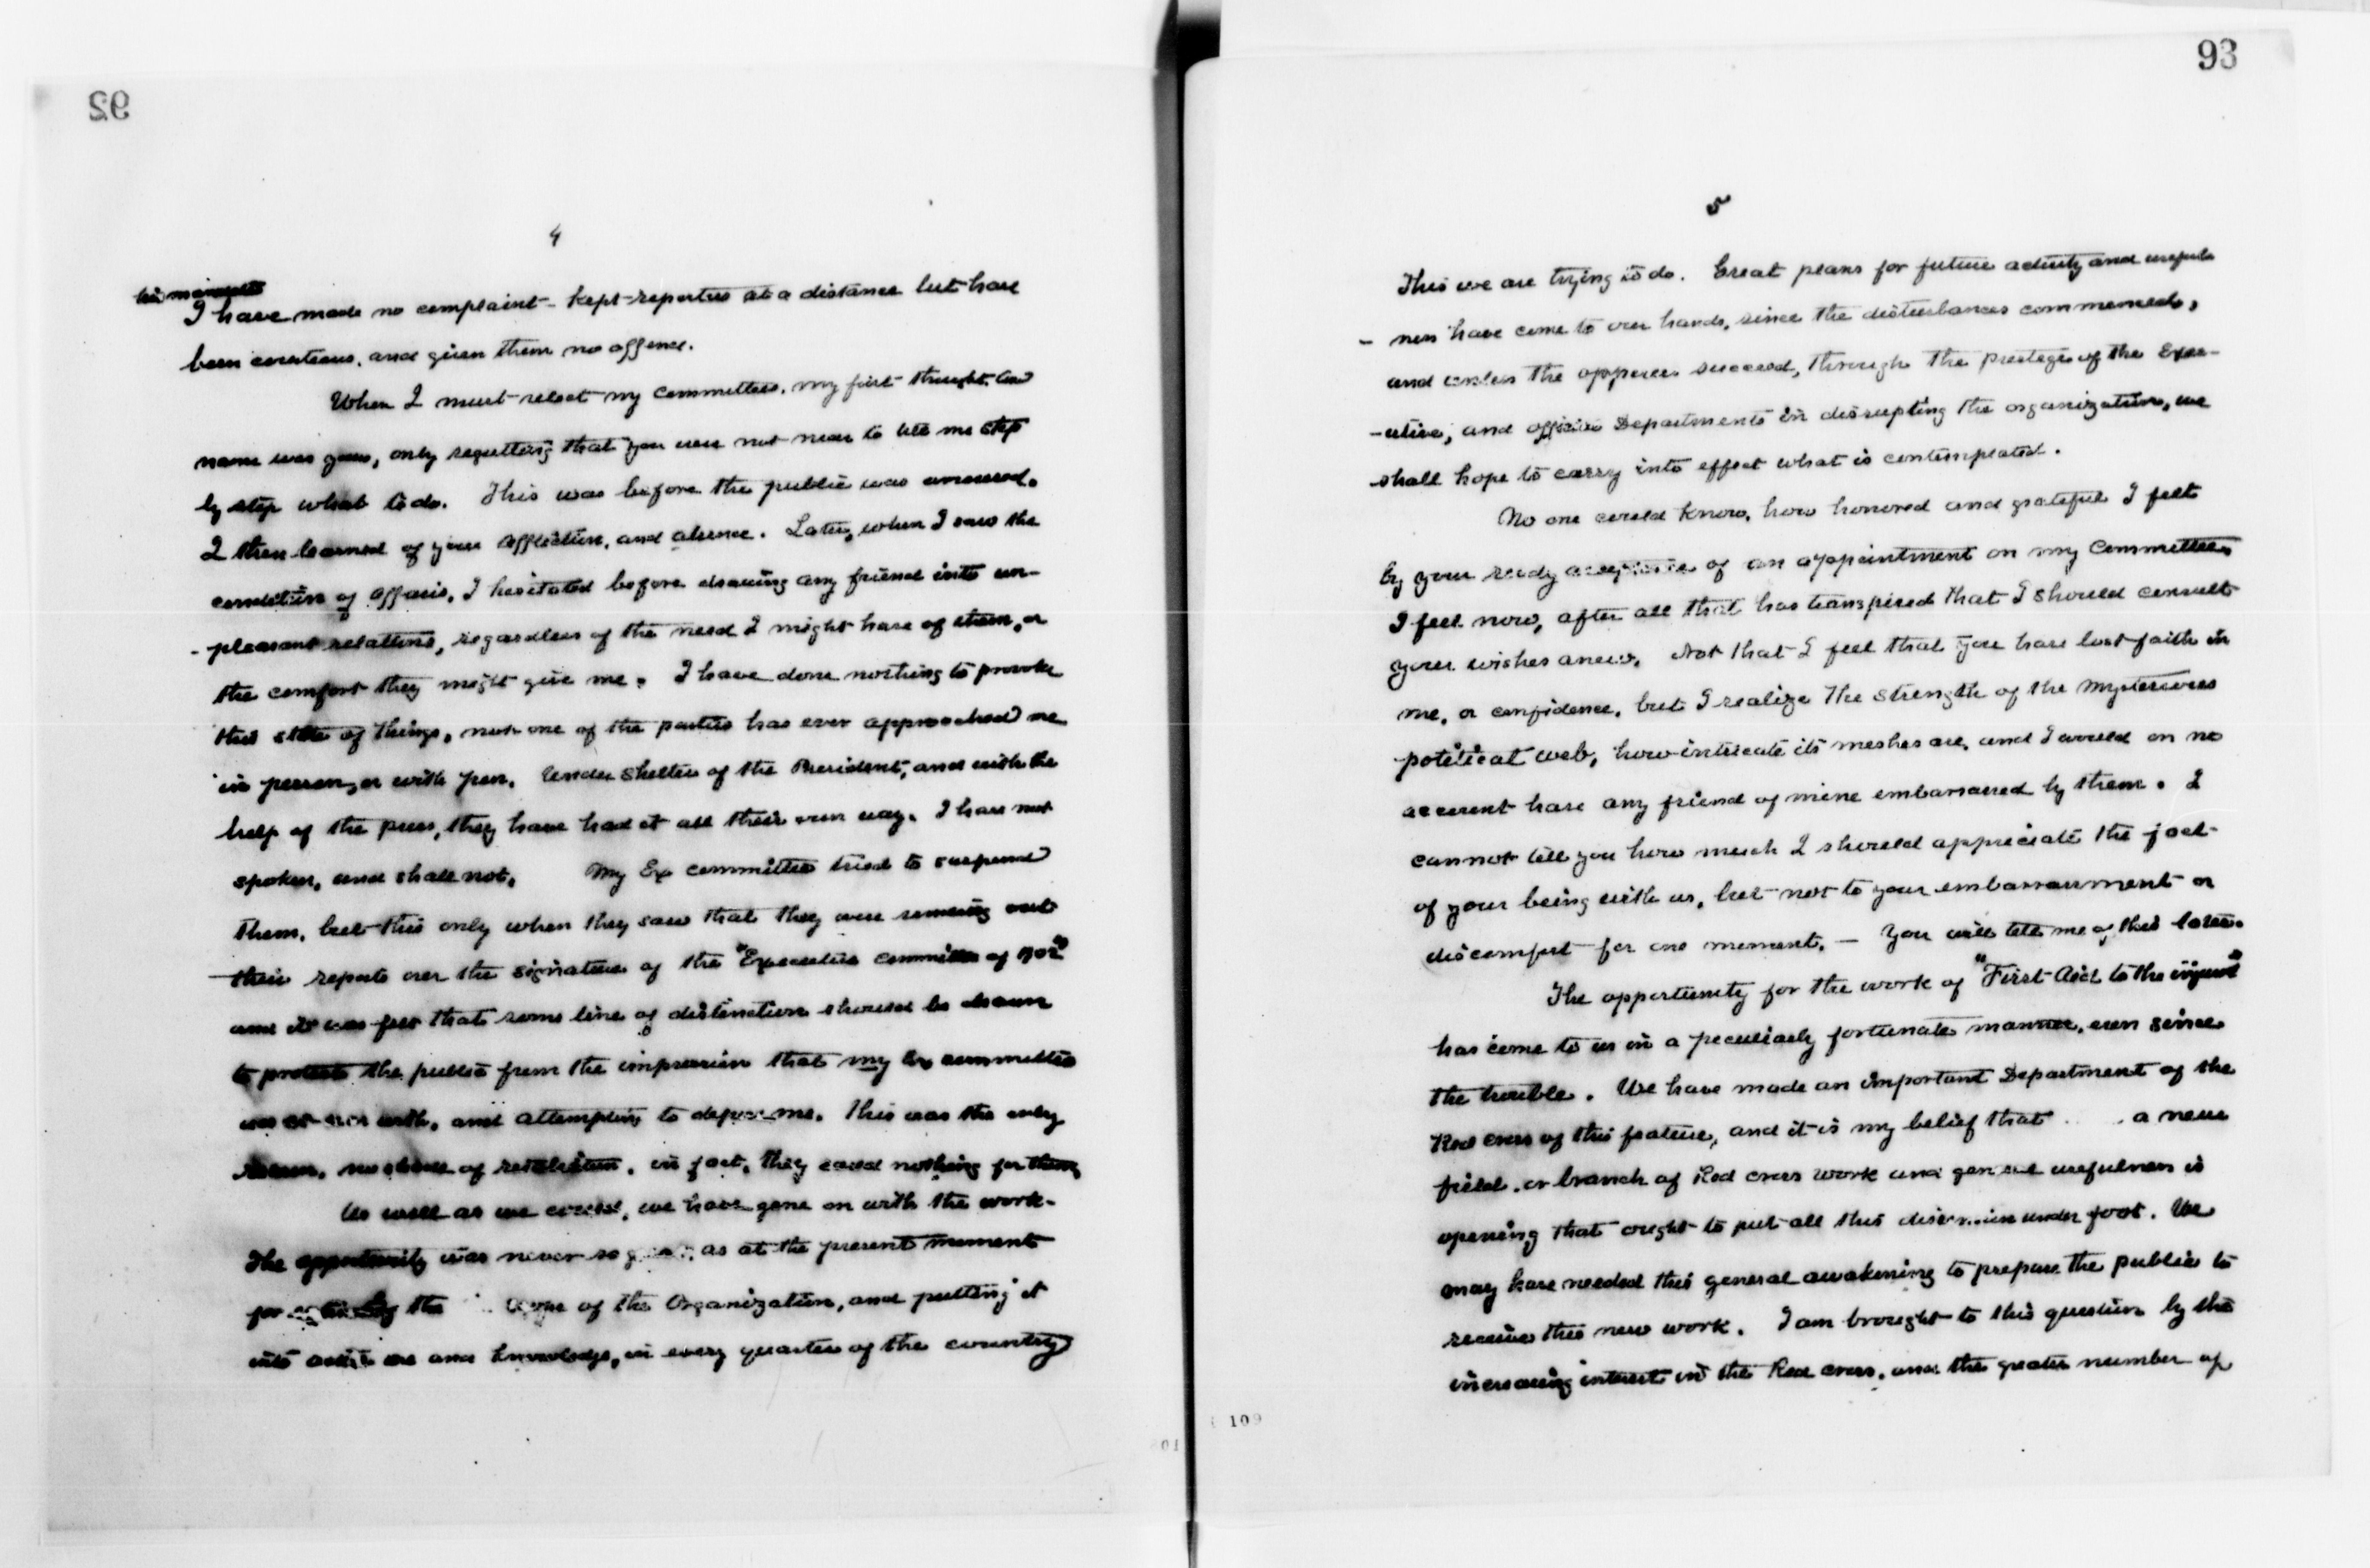 92
4
his minutes
I have made no complaint - kept reporters at a distance but have
been courteous, and given them no offence.
When I must select my committees, my first thought and
name was yours, only regretting that you were not near to tell me step
by step what to do. This was before the public was aroused.
I then learned of your affliction, and absence. Later, when I saw the
condition of affairs, I hesitated before drawing any friend into un-
- pleasant relations, regardless of the need I might have of them, or
the comfort they might give me. I have done nothing to provoke
this state of things, not one of the parties has ever approached me
in person, or with pen. Under shelter of the President, and with the
help of the press, they have had it all their own way. I have not
spoken, and shall not. My Ex committee tried to suspend
them, but this only when they saw that they were sending out
their reports over the signature of the "Executive Committee of 1902"
and it was felt that some line of distinction should be drawn
to protect the public from the impression that my Ex committee
was at war with, and attempting to depose me. This was the only
reason, no shade of retaliation, in fact, they cared nothing for them
As well as we could, we have gone on with the work -
The opportunity was never so as at the present moment
for the of the Organization, and putting it
into and knowledge, in every quarter of the country
93
5
This we are trying to do. Great plans for future activity and useful-
- ness have come to our hands, since the disturbances commenced,
and unless the opposers succeed, through the prestige of the Exec-
- utive, and official Departments in disrupting the organization, we
shall hope to carry into effect what is contemplated.
No one could know, how honored and grateful I felt
by your ready acceptance of an appointment on my Committee,
I feel now, after all that has transpired that I should consult
your wishes anew. Not that I feel that you have lost faith in
me, or confidence, but I realize the strength of the mysterious
political web, how intricate its meshes are, and I would on no
account have any friend of mine embarrassed by them. I
cannot tell you how much I should appreciate the fact
of your being with us, but not to your embarrassment or
discomfort for one moment. - You will tell me of this later.
The opportunity for the work of "First Aid to the injured"
has come to us in a peculiarly fortunate manner, even since
the trouble. We have made an important Department of the
Red Cross of this feature, and it is my belief that a new
field, or branch of Red Cross work and general usefulness is
opening that ought to put all this discussion under foot. We
may have needed this general awakening to prepare the public to
receive this new work. I am brought to this question by the
increasing interest in the Red Cross, and the greater number of
109